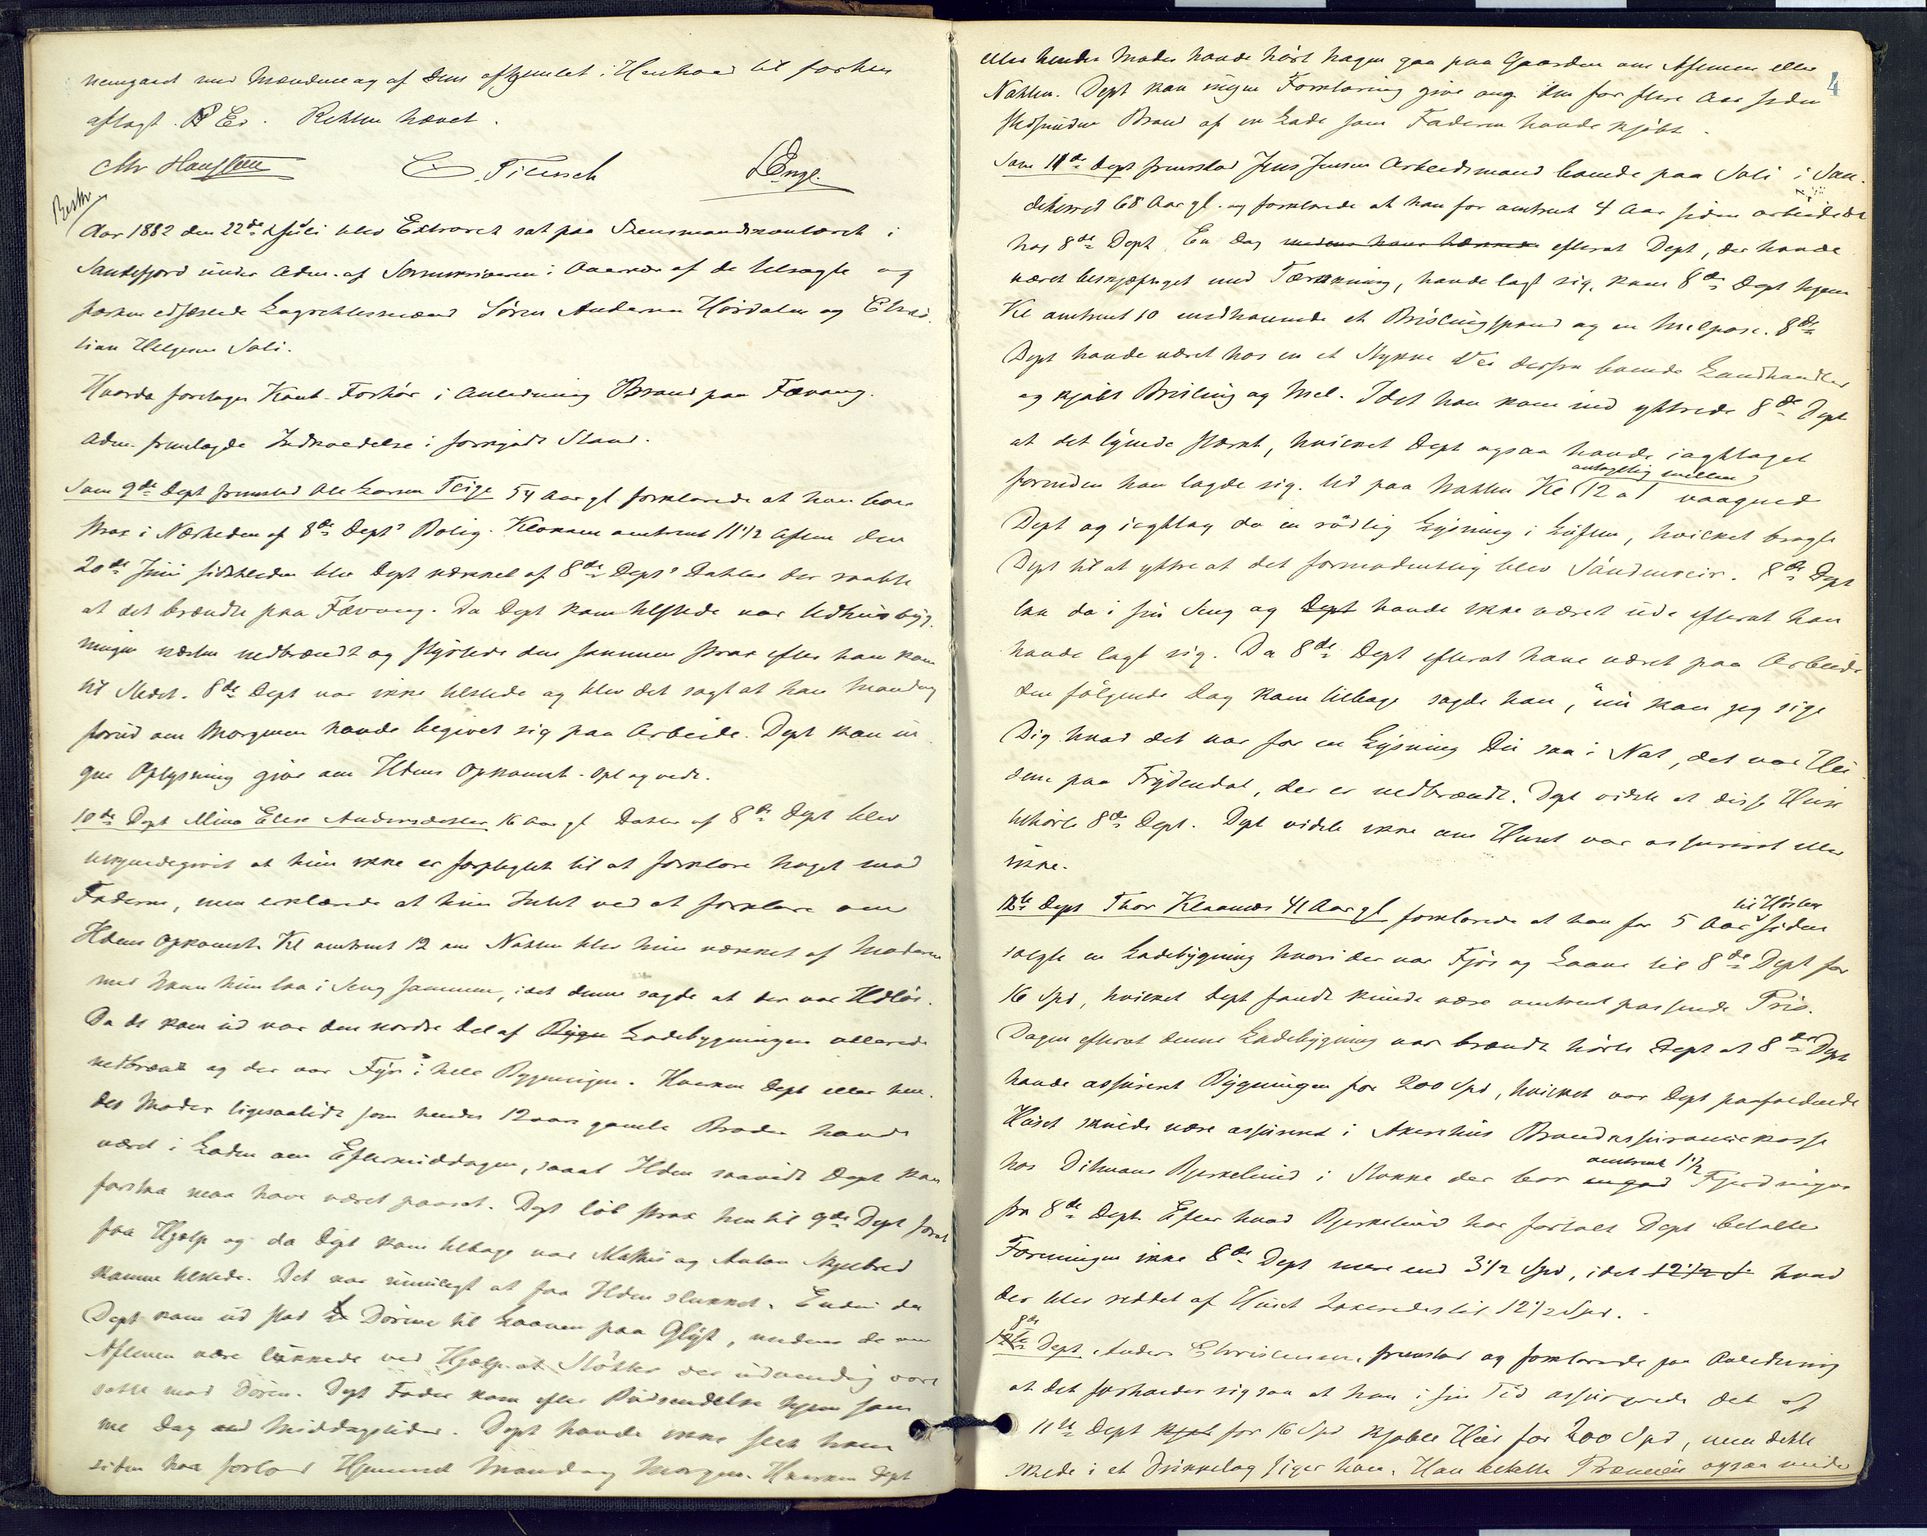 nemgaaet med Mændene og af dem afhjemlet i Henhold til forhen
aflagt Ed. Retten hævet.
Chr Hanssen C. Fiensch LEngl.
Besk
Aar 1882 den 22de Juli blev Extraret sat paa Lensmandskontoret i
Sandefjord under Adm. af Sorenskriveren i Overvær af de tilsagte og
forhen edfæstede Lagrettesmænd Søren Andersen Hørdalen og Chris-
tian Helgesen Soli.
Hvorda foretoges Kont. Forhør i Anledning Brand paa Fævang.
Adm. fremlagde Indkaldelse i forkyndt Stand.
Som 9de Dept fremstod Ole Larsen Teige 54 Aar gl forklarede at han bor
strax i Nærheden af 8de Depts Bolig. Klokken omtrent 11 1/2 Aften den
20de Juni sidstleden blev Dept vækket af 8de Depts Datter der raabte
at det brændte paa Fævang. Da Dept kom tilstede var Udhusbyg-
ningen næsten nedbrændt og styrtede den sammen strax efter han kom
til Stedet. 8de Dept var ikke tilstede og blev det sagt at han Mandag
forud om Morgenen havde begivet sig paa Arbeide. Dept kan in-
gen Oplysning give om Ildens Opkomst. Opl og vedt.
10de Dept Mina Elise Andersdatter 16 Aar gl Datter af 8de Dept blev
tilkjendegivet at hun ikke er forpligtet til at forklare Noget mod
Faderen, men erklærede at hun Intet ved at forklare om
Ildens Opkomst. Kl omtrent 12 om Natten blev hun vækket af Moderen
med hvem hun laa i Seng sammen, idet denne sagde at der var Ildløs.
Da de kom ud var den nordre Del af Bygn Ladebygningen allerede
nedbrændt og der var Fyr i hele Bygningen. Hverken Dept eller hen-
des Moder ligesaalidt som hendes 12 aar gamle Broder havde
været i Laden om Eftermiddagen, saaat Ilden saavidt Dept kan
forstaa maa have været paasat. Dept løb strax hen til 9de Dept forat
faa Hjælp og da Dept kom tilbage var Mathis og Anton
komne tilstede. Det var umuligt at faa Ilden slukket. Endnu da
Dept kom ud stod Dørene til Laaven paa Gløt, medens de om
Aftenen være lukkede ved Hjælp at Støtter der udvendig vare
satte mod Døren. Dept Fader kom efter Budsendelse hjem sam-
me Dag ved Middagstider. Dept havde ikke seet ham
siden han forlod Hjemmet Mandag Morgen. Hverken Dept
4
eller hendes Moder havde hørt Nogen gaa paa Gaarden om Aftenen eller
Natten. Dept kan ingen Forklaring give ang. den for flere Aar siden
stedfundne Brand af en Lade som Faderen havde kjøbt.
Som 11de Dept fremstod Jens Jensen Arbeidsmand boende paa Soli i San-
deherred 68 Aar gl. og forklarede at han for omtrent 4 Aar siden arbeidede
hos 8de Dept. En Dag medens han efterat Dept, der havde
været beskjæftiget med Tærskning, havde lagt sig, kom 8de Dept hjem
Kl omtrent 10 medhavende et Brislingspand og en Melpose. 8de
Dept havde været hos en et Stykke Vei derfra boende Landhandler
og kjøbt Brisling og Mel. Idet han kom ind yttrede 8de Dept
at det lynede stærkt, hvilket Dept ogsaa havde iagttaget
forinden han lagde sig. Ud paa Natten Kl antagelig mellem 12 a 1 vaagned
Dept og iagttog da en rødlig Lysning i Luften, hvilket bragte
Dept til at yttre at det formodentlig blev Søndenveir. 8de Dept
laa da i sin Seng og Dept havde ikke været ude efterat han
havde lagt sig. Da 8de Dept efterat have været paa Arbeide
den følgende Dag kom tilbage sagde han, "nu kan jeg sige
Dig hvad det var for en Lysning Du saa i Nat, det var Hu-
sene paa Frydendal, der er nedbrændt. Dept vidste at disse Huse
tilhørte 8de Dept. Dept vidste ikke om Huset var assureret eller
ikke.
12te Dept Thor Klaanes 41 Aar gl forklarede at han for 5 Aar til Høsten siden
solgte en Ladebygning hvori der var Fjøs og Laave til 8de Dept for
16 Spd, hvilket Dept fandt kunde være omtrent passende Pris.
Dagen efterat denne Ladebygning var brændt hørte Dept at 8de Dept
havde assureret Bygningen for 200 Spd, hvilket var Dept paafaldende
Huset skulde være assureret i Akershus Brandassurancekasse
hos Ditmann Bjerkelund i Stokke der bor omtrent 1 1/2 Fjerdinger
fra 8de Dept. Efter hvad Bjerkelund har fortalt Dept betalte
Foreningen ikke 8de Dept mere end 3 1/2 Spd, idet 12 1/2 S hvad
der blev reddet af Huset takseredes til 12 1/2 Spd.
8de
12te Dept Anders Christensen fremstod og forklarede paa Anledning
at det forholder sig saa at han i sin Tid assurerede det af
11te Dept kjøb for 16 Spd kjøbte Hus for 200 Spd, men dette
skede i et Drikkelag siger han. Han betalte Præmien ogsaa med